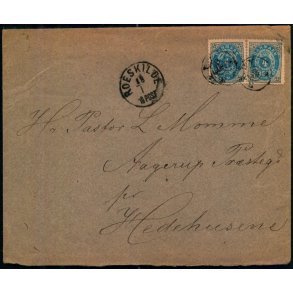 ROESKILDE
Hr Pastor L Momme
Aagerup Præstegd
pr
Hedehusene